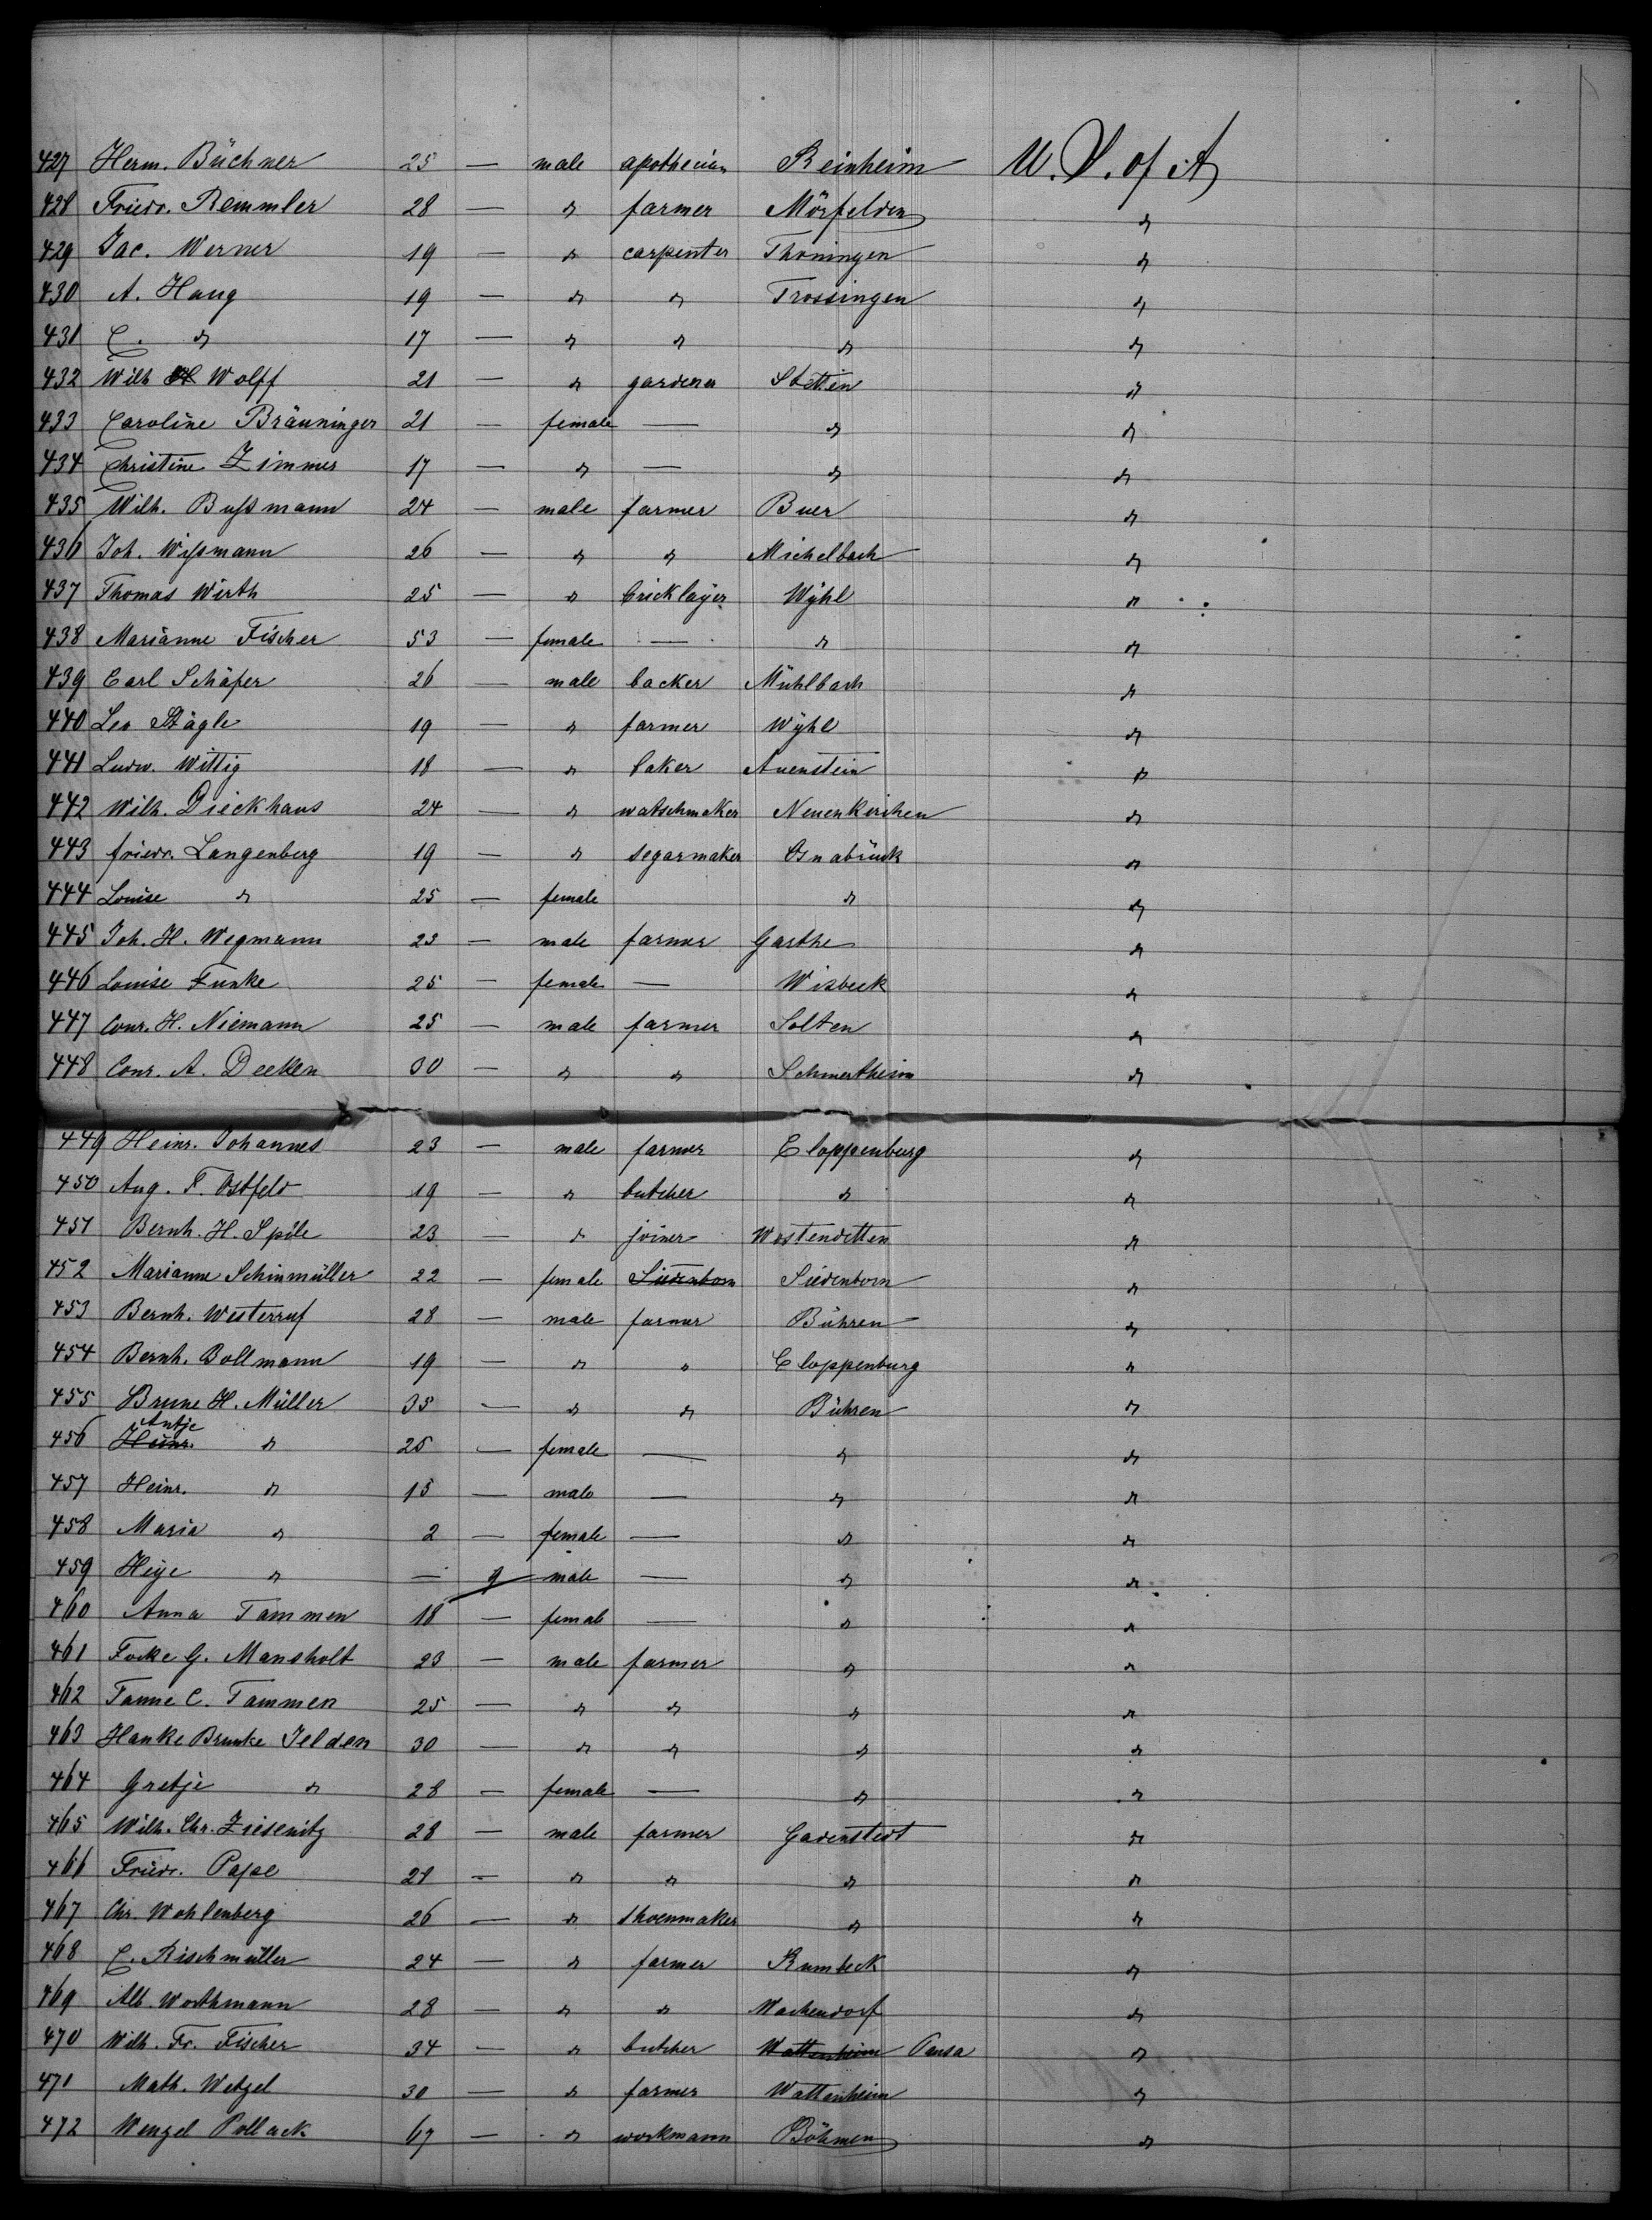 427 Herm. Büchner 25 — male apothecian Reinheim U. S. of A
428 Friedr. Remmler 28 — " farmer Mörfelden "
429 Jac. Werner 19 — " carpenter Thöningen "
430 A. Haug 19 — " " Trossingen "
431 C. " 17 — " " " "
432 Wilh Wolff 21 — " gardener Stettin "
433 Caroline Bräuninger 21 — female — " "
434 Christine Zimmer 17 — " — " "
435 Wilh. Bußmann 24 — male farmer Buer "
436 Joh. Wißmann 26 — " " Michelbach "
437 Thomas Wirth 25 — " bricklayer Wyhl "
438 Marianne Fischer 53 — female — " "
439 Carl Schäfer 26 — male backer Mühlbach "
440 Leo Nägle 19 — " farmer Wyhl "
441 Ludw. Wittig 18 — " baker Auenstein "
442 Wilh. Dieckhaus 24 — " watschmaker Neuenkirchen "
443 friedr. Langenberg 19 — " segarmaker Osnabrück "
444 Louise " 25 — female " "
445 Joh. H. Wegmann 23 — male farmer Garthe "
446 Louise Funke 25 — female — Wisbeck "
447 Conr. H. Niemann 25 — male farmer Solten "
448 Conr. A. Deeken 30 — " " Schmertheim "
449 Heinr. Johannes 23 — male farmer Cloppenburg "
450 Aug. F. Ostfeld 19 — " butcher " "
451 Bernh. H. Spile 23 — " joiner Westendetten "
452 Marianne Schinmüller 22 — female Siedenborn Siedenborn "
453 Bernh. Westerruf 28 — male farmer Bühren "
454 Bernh. Bollmann 19 — " " Cloppenburg "
455 Brune H. Müller 35 — " " Bühren "
456 Heinr. Antje " 25 — female — " "
457 Heinr. " 15 — male — " "
458 Maria " 2 — female — " "
459 Heye " — 9 male — " "
460 Anna Tammen 18 — female — " "
461 Focke G. Mansholt 23 — male farmer " "
462 Tanne C. Tammen 25 — " " " "
463 Hanke Brunke Jelden 30 — " " " "
464 Gretje " 28 — female — " "
465 Wilh. Chr. Ziesenitz 28 — male farmer Gadenstedt "
466 Friedr. Pape 21 — " " " "
467 Chr. Wohlenberg 26 — " shoenmaker " "
468 C. Rischmüller 24 — " farmer Rumbeck "
469 Alb. Worthmann 28 — " " Wachendorf "
470 Wilh. Fr. Fischer 34 — " butcher Wattenheim Pausa "
471 Math. Wetzel 30 — " farmer Wattenheim "
472 Wenzel Pollack 67 — " workmann Böhmen "